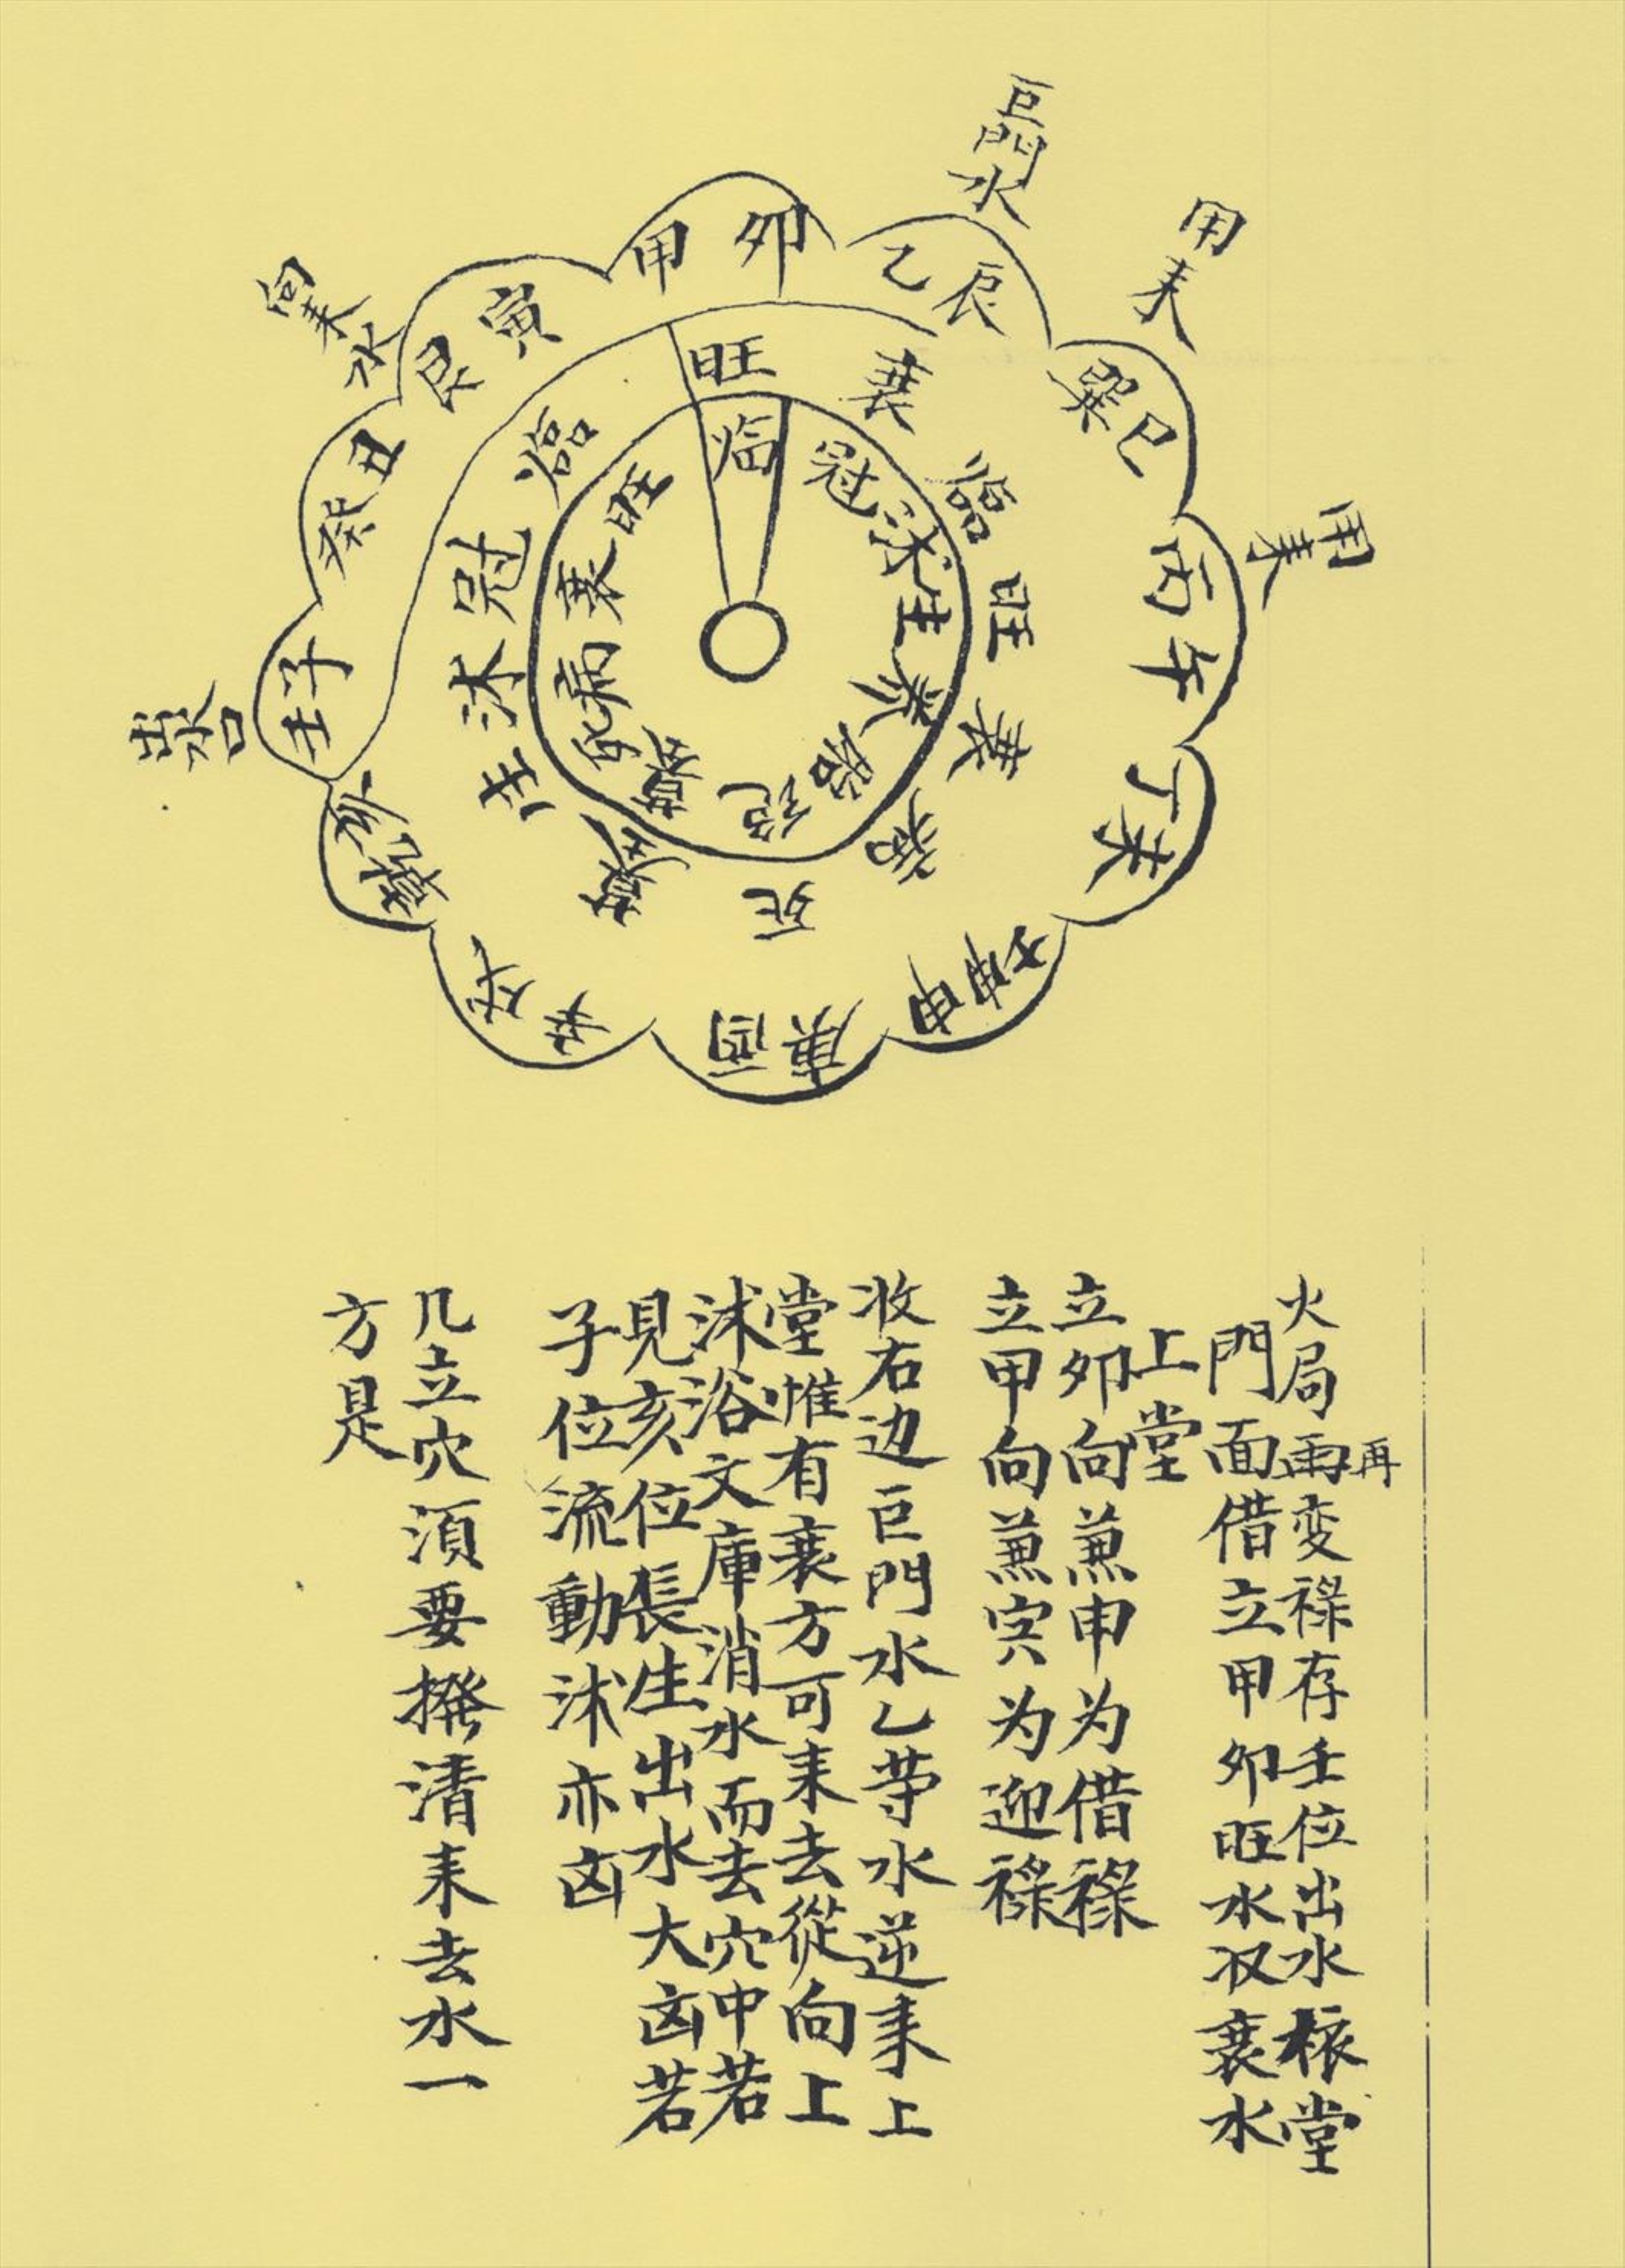 巨門水
用耒
用耒
向耒水
出水口
甲卯
乙辰
巽巳
丙午
丁未
坤申
庚酉
辛戌
乾亥
壬子
癸丑
艮寅
旺
衰
臨
旺
衰
病
死
墓
生
沐
冠
臨
临
冠
沐
生
养
胎
绝
墓
死
病
衰
旺
再
火局兩变禄存壬位出水樣堂
門面借立甲卯旺水收衰水
上堂
立卯向兼申为借禄
立甲向兼寅为迎禄
收右边巨門水乙等水逆耒上
堂惟有衰方可耒去從向上
沐浴文庫消水而去穴中若
見亥位長生出水大凶若
子位流動沐亦凶
几立穴須要撥清耒去水一
方是